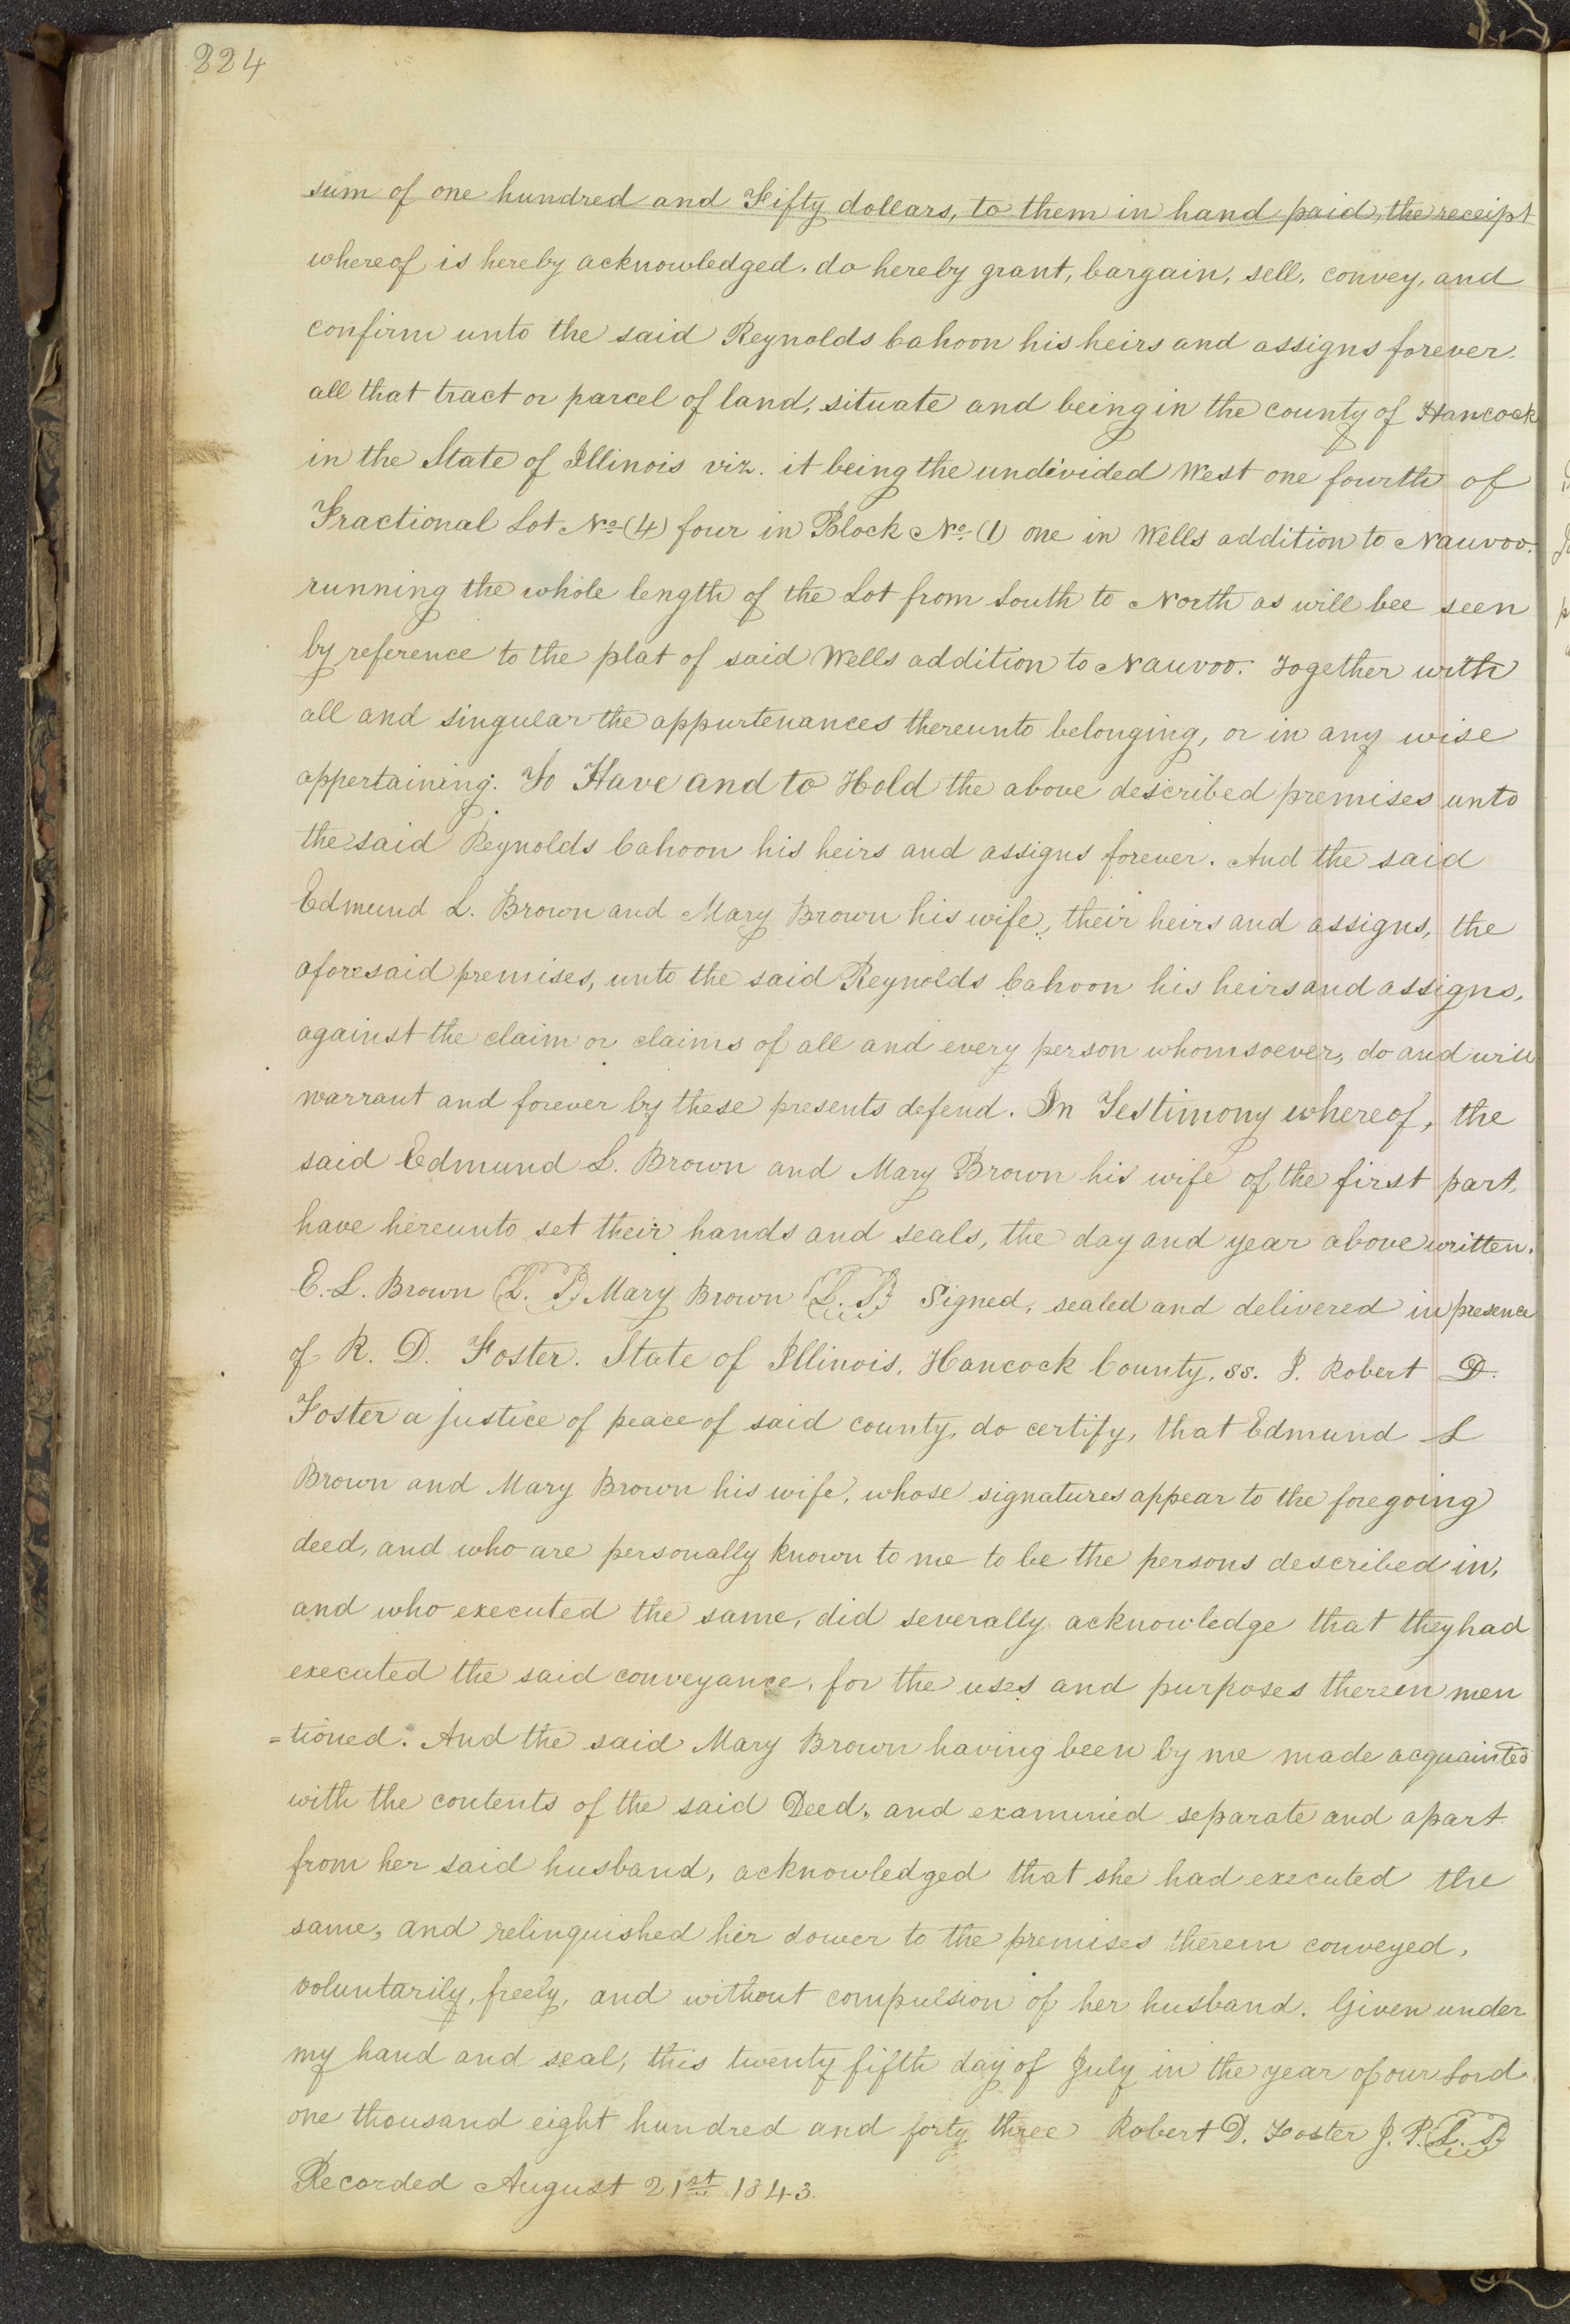 224
sum of one hundred and Fifty dollars, to them in hand paid, the receipt
whereof is hereby acknowledged. do hereby grant, bargain, sell, convey, and
confirm unto the said Reynolds Cahoon his heirs and assigns forever.
all that tract or parcel of land, situate and being in the county of Hancock
in the State of Illinois viz. it being the undivided West one fourth of
Fractional Lot No. (4) four in Block No. (1) one in Wells addition to Nauvoo.
running the whole length of the Lot from South to North as will bee seen
by reference to the plat of said Wells addition to Nauvoo. Together with
all and singular the appurtenances thereunto belonging, or in any wise
appertaining. To Have and to Hold the above described premises unto
the said Reynolds Cahoon his heirs and assigns forever. And the said
Edmund L. Brown and Mary Brown his wife, their heirs and assigns, the
aforesaid premises, unto the said Reynolds Cahoon his heirs and assigns,
against the claim or claims of all and every person whomsoever, do and will
warrant and forever by these presents defend. In Testimony whereof, the
said Edmund L. Brown and Mary Brown his wife of the first part,
have hereunto set their hands and seals, the day and year above written.
E. L. Brown (L. S) Mary Brown (L. S) Signed, sealed and delivered in presence
of R. D. Foster. State of Illinois, Hancock County, ss. I. Robert D.
Foster a justice of peace of said county, do certify, that Edmund L
Brown and Mary Brown his wife, whose signatures appear to the foregoing
deed, and who are personally known to me to be the persons described in,
and who executed the same, did severally acknowledge that they had
executed the said conveyance, for the uses and purposes therein men
=tioned. And the said Mary Brown having been by me made acquainted
with the contents of the said Deed, and examined separate and apart
from her said husband, acknowledged that she had executed the
same, and relinquished her dower to the premises therein conveyed,
voluntarily, freely, and without compulsion of her husband. Given under
my hand and seal, this twenty fifth day of July in the year of our Lord
one thousand eight hundred and forty three Robert D. Foster J. P. (L. S)
Recorded August 21st 1843.